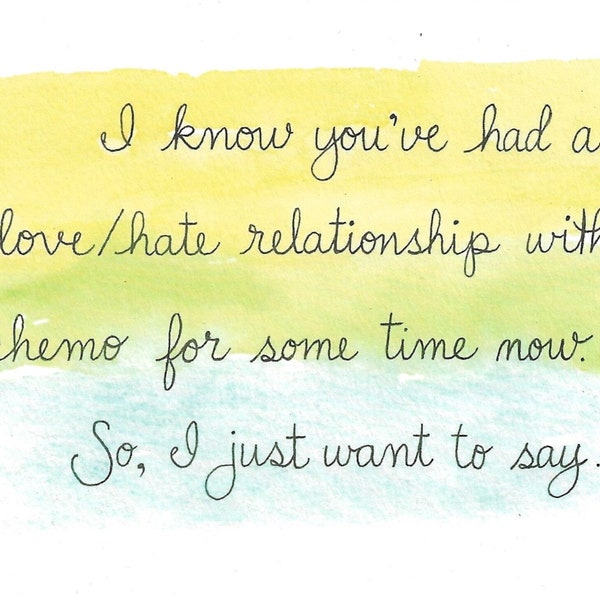 I know you've had a
love/hate relationship with
chemo for some time now.
So, I just want to say.